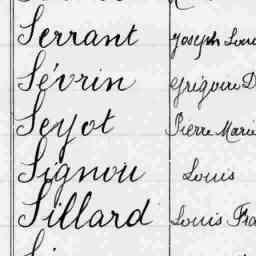 Serrant Joseph Loui
Sévrin Grégoire D
Seyot Pierre Marie
Signou Louis
Sillard Louis Fra